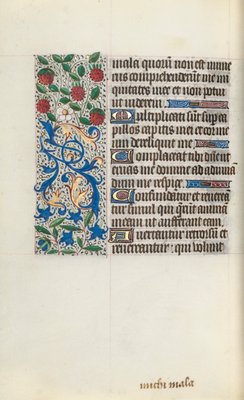 mala quoru non est nume
rus comprehenderut me mi
quitates mee et non potui
ut viderem
Multiplicati sut super ca
pillos capitis mei et cor me
um dereliquit me
Complaceat tibi dne ut
eruas me domine ad adiuuan
dum me respice
Confundatur et reuerea
tur simul qui querut anima
meam ut auferant eam
Auertantur retrorsu et
reuereantur qui volunt
michi mala